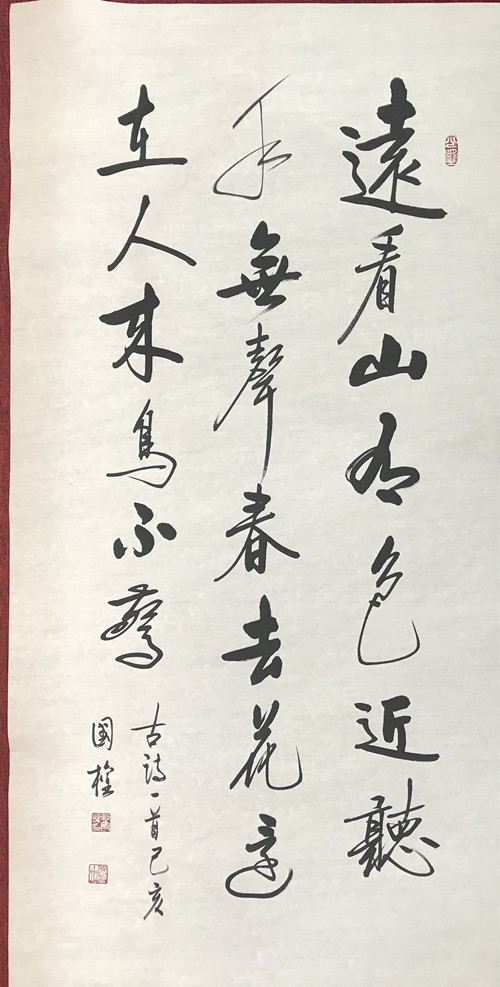 遠看山有色近聽
水無聲春去花還
在人來鳥不驚
古詩一首己亥
國權